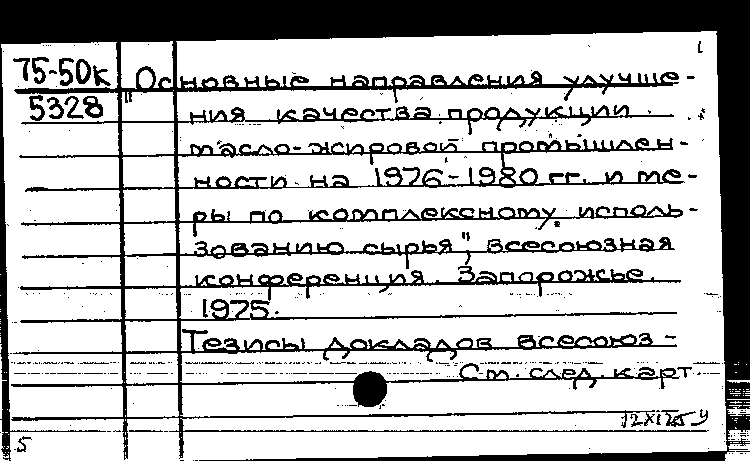 75-50к
5328
"Основные направления улучше-
ния качества продукции
масло-жировой промышлен-
ности на 1976-1980 гг. и ме-
ры по комплексному исполь-
зованию сырья", всесоюзная
конференция. Запорожье.
1975.
Тезисы докладов всесоюз-
См. след. карт.
5